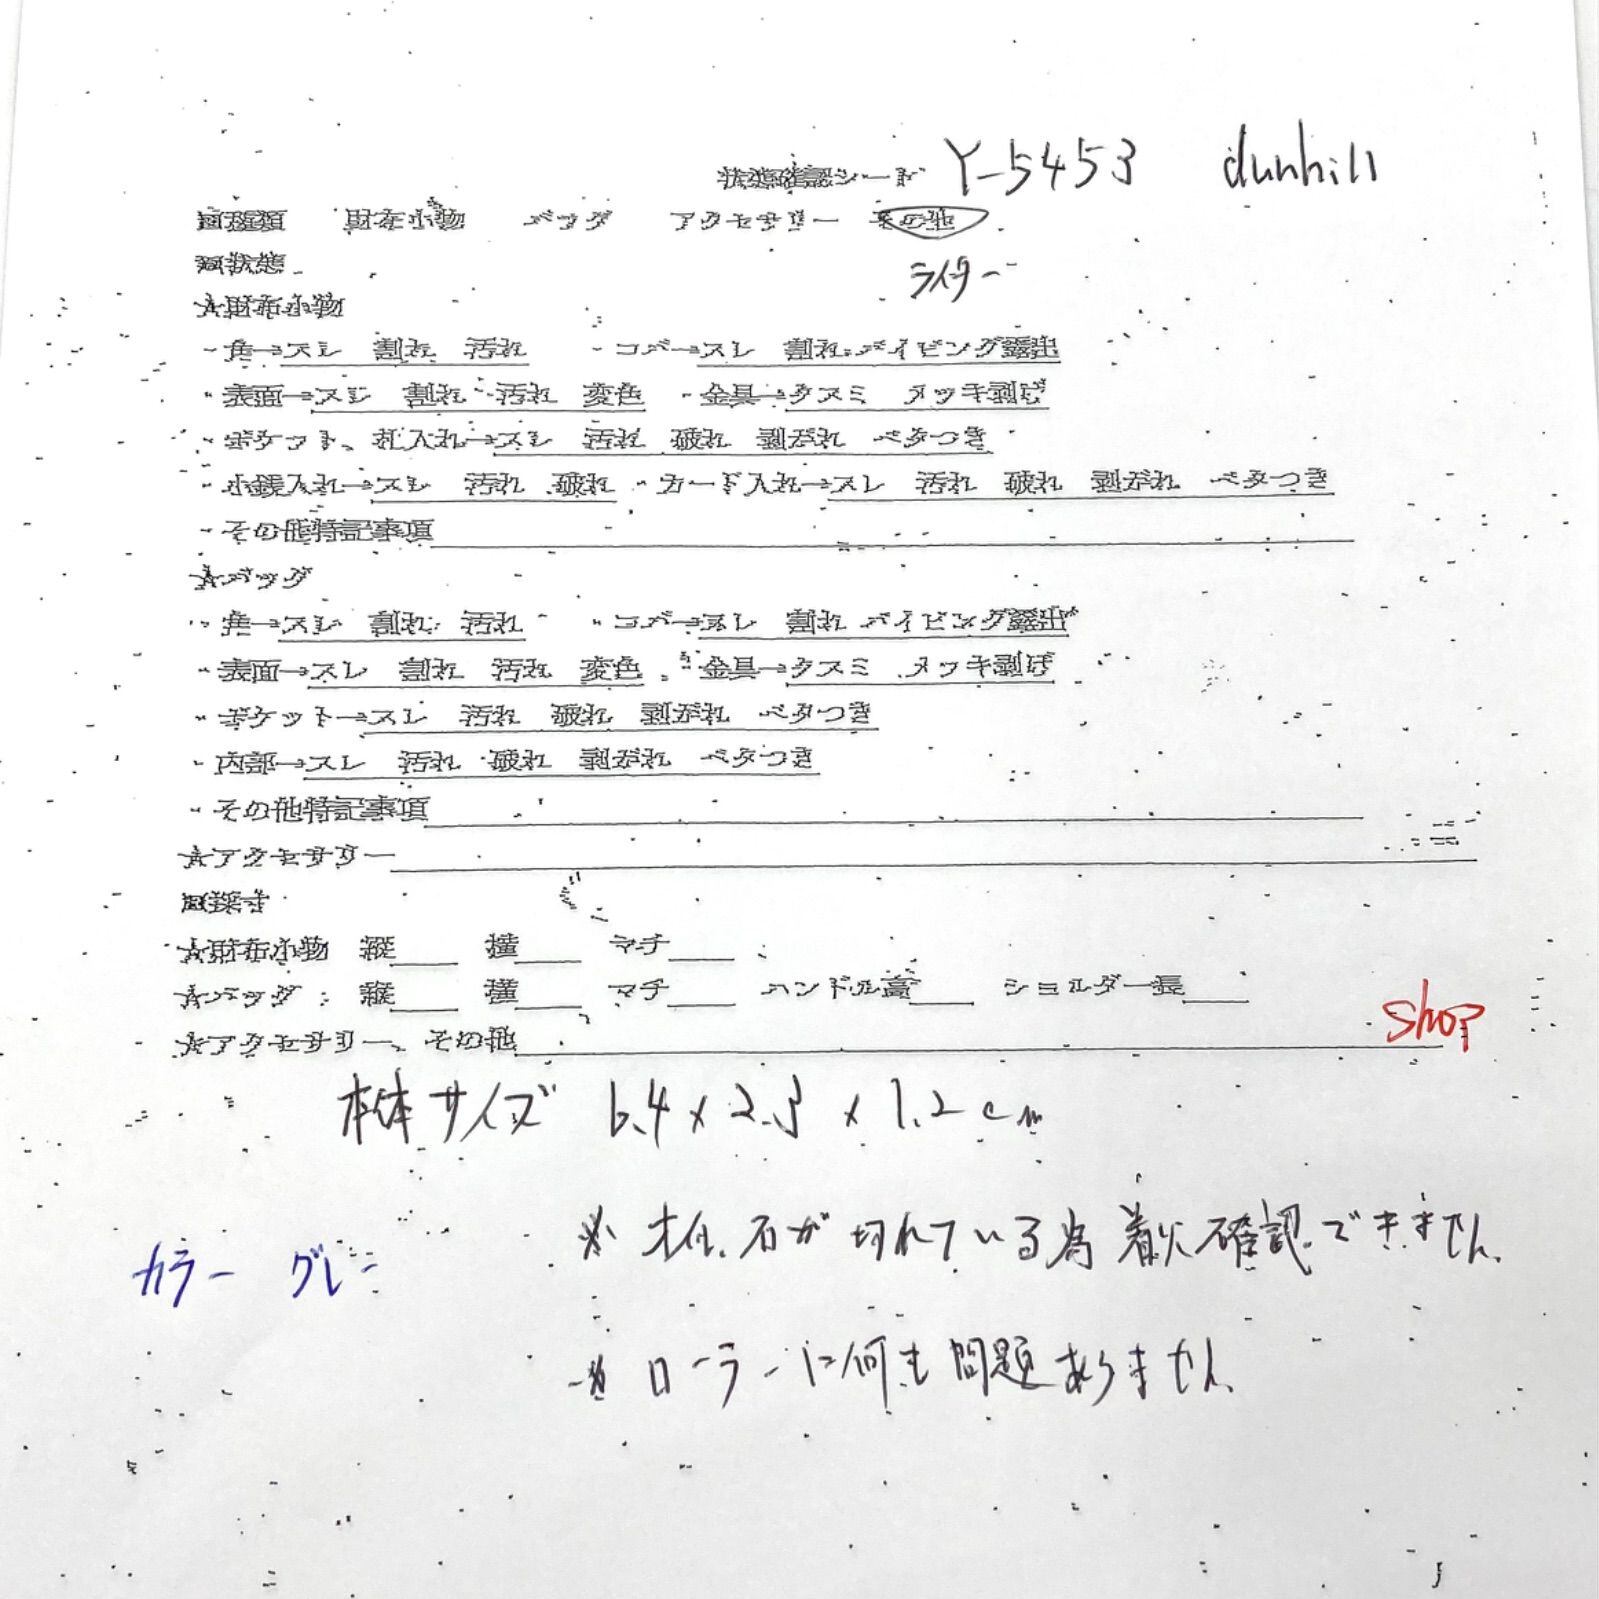 状態確認シート Y-5453 dunhill
回種類 財布小物 バッグ アクセサリー その他
回状態 ライター
☆財布小物
・角→スレ 割れ 汚れ ・コバ→スレ 割れ パイピング露出
・表面→スレ 割れ 汚れ 変色 ・金具→クスミ メッキ剥げ
・ポケット、札入れ→スレ 汚れ 破れ 剥がれ ベタつき
・小銭入れ→スレ 汚れ 破れ ・カード入れ→スレ 汚れ 破れ 剥がれ ベタつき
・その他特記事項
☆バッグ
・角→スレ 割れ 汚れ ・コバ→スレ 割れ パイピング露出
・表面→スレ 割れ 汚れ 変色 ・金具→クスミ メッキ剥げ
・ポケット→スレ 汚れ 破れ 剥がれ ベタつき
・内部→スレ 汚れ 破れ 剥がれ ベタつき
・その他特記事項
☆アクセサリー
回採寸
☆財布小物 縦 横 マチ
☆バッグ 縦 横 マチ ハンドル高 ショルダー長
☆アクセサリー、その他 shop
本体サイズ 6.4 x 2.3 x 1.2cm
※ オイル、石が切れている為着火確認できません。
カラー グレー
※ ローラーに何も問題ありません。